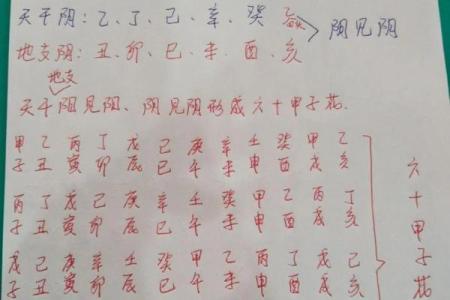 天干阴：乙、丁、己、辛、癸
阴见阴
地支阴：丑、卯、巳、未、酉、亥
地支
天干阳见阳、阴见阴形成六十甲子花.
甲乙丙丁戊己庚辛壬癸甲乙
子丑寅卯辰巳午未申酉戌亥
丙丁戊己庚辛壬癸甲乙丙丁
子丑寅卯辰巳午未申酉戌亥
戊己庚辛壬癸甲乙丙丁戊己
子丑寅卯辰巳午未申酉戌亥
六十甲子花